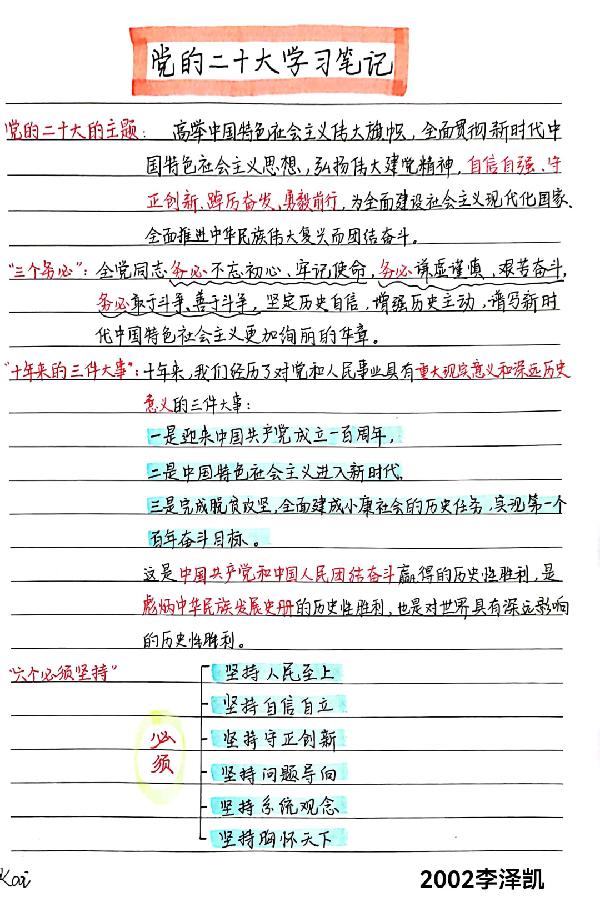 党的二十大学习笔记
党的二十大的主题：高举中国特色社会主义伟大旗帜，全面贯彻新时代中
国特色社会主义思想，弘扬伟大建党精神，自信自强、守
正创新、踔厉奋发、勇毅前行，为全面建设社会主义现代化国家、
全面推进中华民族伟大复兴而团结奋斗。
"三个务必"：全党同志务必不忘初心、牢记使命，务必谦虚谨慎、艰苦奋斗，
务必敢于斗争、善于斗争，坚定历史自信，增强历史主动，谱写新时
代中国特色社会主义更加绚丽的华章。
"十年来的三件大事"：十年来，我们经历了对党和人民事业具有重大现实意义和深远历史
意义的三件大事：
一是迎来中国共产党成立一百周年，
二是中国特色社会主义进入新时代，
三是完成脱贫攻坚，全面建成小康社会的历史任务，实现第一个
百年奋斗目标。
这是中国共产党和中国人民团结奋斗赢得的历史性胜利，是
彪炳中华民族发展史册的历史性胜利，也是对世界具有深远影响
的历史性胜利。
"六个必须坚持"
必须
坚持人民至上
坚持自信自立
坚持守正创新
坚持问题导向
坚持系统观念
坚持胸怀天下
Kai
2002李泽凯